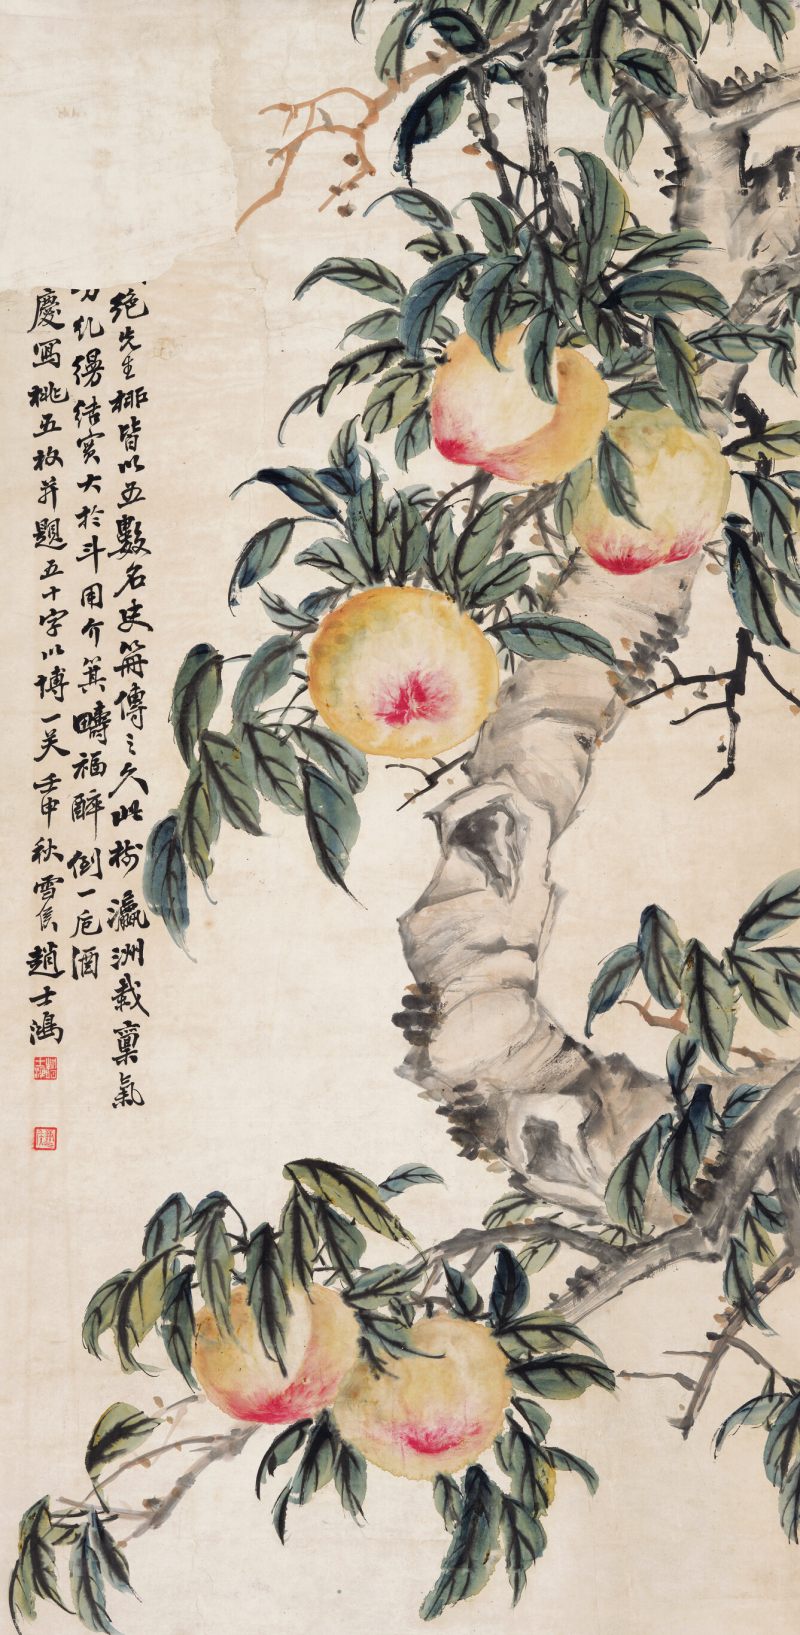 絶先生柳皆以五數名史冊傳之久此樹瀛洲栽稟氣
乃
結實大於斗用介箕疇福醉倒一卮酒
慶寫桃五枚并題五十字以博一笑 壬申秋雪侯趙士鴻